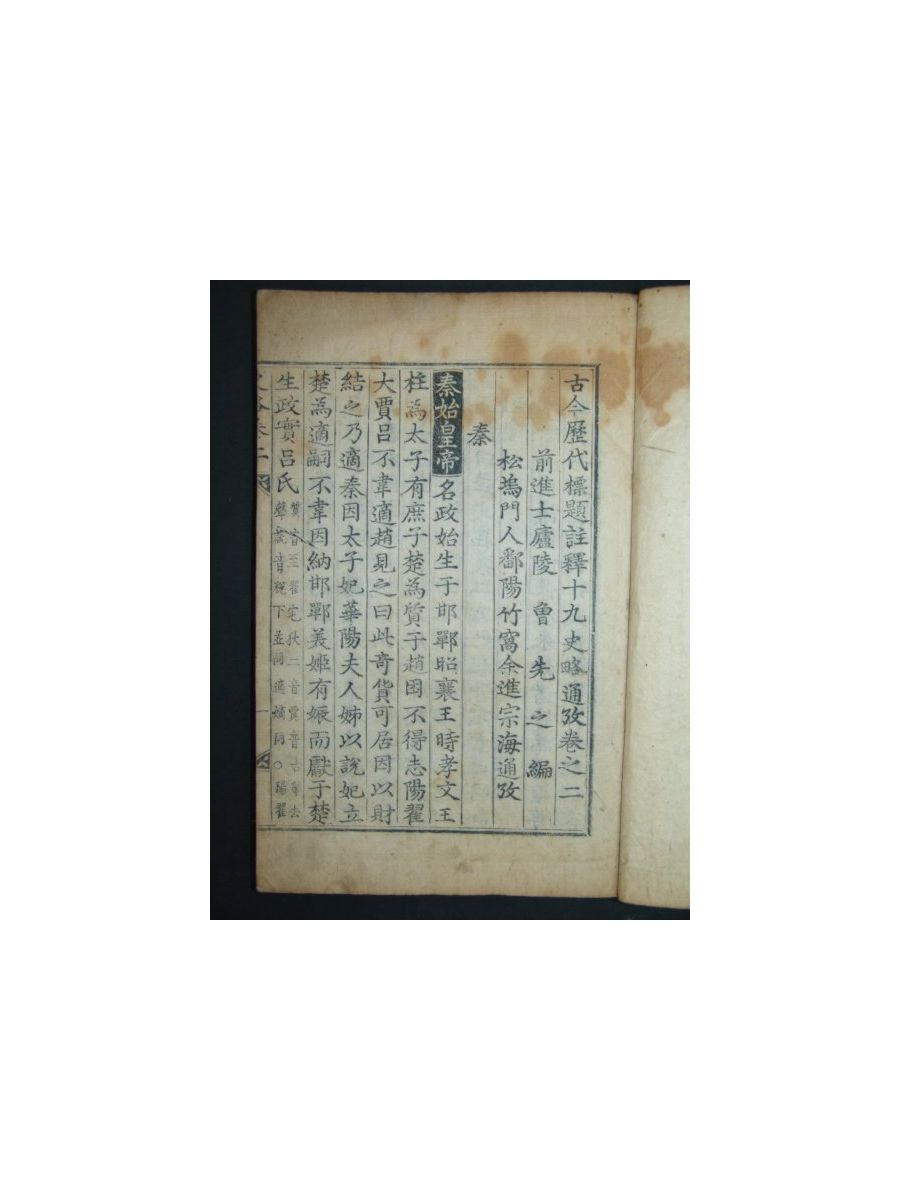 古今歷代標題註釋十九史略通攷卷之二
前進士廬陵 曾 先 之 編
松塢門人鄱陽竹窩余進宗海通攷
秦
秦始皇帝名政始生于邯鄲昭襄王時孝文王
柱為太子有庶子楚為質于趙困不得志陽翟
大賈呂不韋適趙見之曰此奇貨可居因以財
結之乃適秦因太子妃華陽夫人姊以說妃立
楚為適嗣不韋因納邯鄲美姬有娠而獻于楚
生政實呂氏
質音至翟宅狄二音賈音古
說音稅下並同適嫡同○陽翟